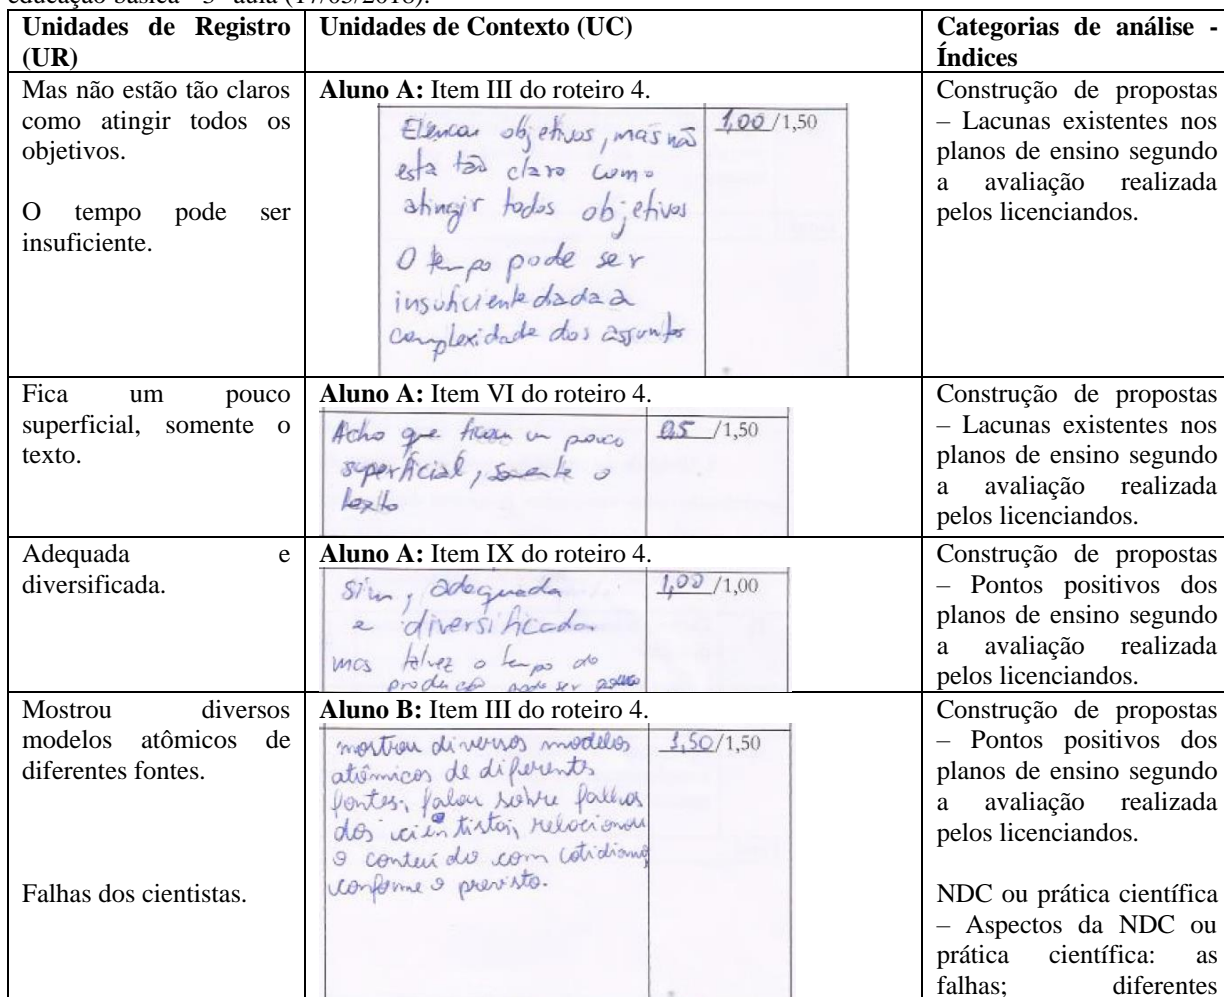 educação básica - 3ª aula (17/05/2018).
Unidades de Registro (UR)
Unidades de Contexto (UC)
Categorias de análise - Índices
Mas não estão tão claros
como atingir todos os
objetivos.
O tempo pode ser
insuficiente.
Aluno A: Item III do roteiro 4.
Elencou objetivos, mas não
esta tão claro como
atingir todos objetivos
O tempo pode ser
insuficiente dada a
complexidade dos assuntos
1,00/1,50
Construção de propostas
– Lacunas existentes nos
planos de ensino segundo
a avaliação realizada
pelos licenciandos.
Fica um pouco
superficial, somente o
texto.
Aluno A: Item VI do roteiro 4.
Acho que ficou um pouco
superficial, somente o
texto
0,5/1,50
Construção de propostas
– Lacunas existentes nos
planos de ensino segundo
a avaliação realizada
pelos licenciandos.
Adequada e
diversificada.
Aluno A: Item IX do roteiro 4.
sim, adequada
e diversificada
mas talvez o tempo de
produção pode ser pouco
1,00/1,00
Construção de propostas
– Pontos positivos dos
planos de ensino segundo
a avaliação realizada
pelos licenciandos.
Mostrou diversos
modelos atômicos de
diferentes fontes.
Falhas dos cientistas.
Aluno B: Item III do roteiro 4.
mostrou diversos modelos
atômicos de diferentes
fontes, falou sobre falhas
dos cientistas, relacionou
o conteúdo com cotidiano,
conforme o previsto.
1,50/1,50
Construção de propostas
– Pontos positivos dos
planos de ensino segundo
a avaliação realizada
pelos licenciandos.
NDC ou prática científica
– Aspectos da NDC ou
prática científica: as
falhas; diferentes